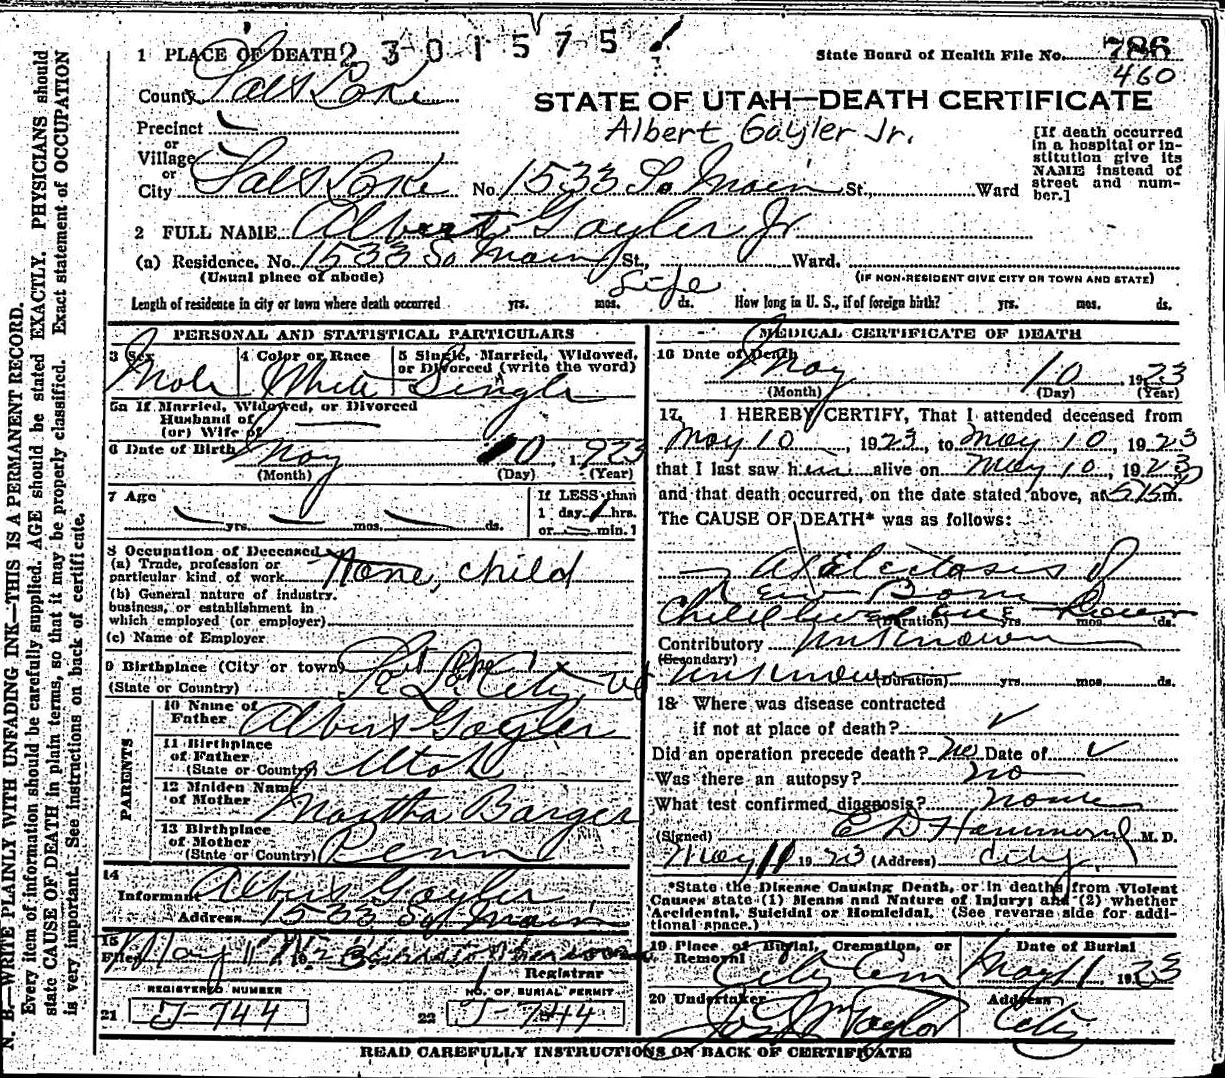 1 PLACE OF DEATH 2301575
State Board of Health File No. 786
460
County Salt Lake
STATE OF UTAH—DEATH CERTIFICATE
Albert Gayler Jr.
Precinct
or
Village
or
City Salt Lake No. 1533 So Main St., Ward
[If death occurred
in a hospital or in-
stitution give its
NAME instead of
street and num-
ber.]
2 FULL NAME Albert Gayler Jr
(a) Residence. No. 1533 So Main St., Ward.
(Usual place of abode)
(IF NON-RESIDENT GIVE CITY OR TOWN AND STATE)
Length of residence in city or town where death occurred yrs. mos. Life ds. How long in U. S., if of foreign birth? yrs. mos. ds.
PERSONAL AND STATISTICAL PARTICULARS
3 Sex
Male
4 Color or Race
White
5 Single, Married, Widowed,
or Divorced (write the word)
Single
5a If Married, Widowed, or Divorced
Husband of
(or) Wife of
6 Date of Birth May 10, 1923
(Month) (Day) (Year)
7 Age
yrs. mos. ds.
If LESS than
1 day 1 hrs.
or min. 1
8 Occupation of Deceased
(a) Trade, profession or
particular kind of work None, child
(b) General nature of industry,
business, or establishment in
which employed (or employer)
(c) Name of Employer
9 Birthplace (City or town)
(State or Country) S. L. City Ut
PARENTS
10 Name of
Father Albert Gayler
11 Birthplace
of Father
(State or Country) Utah
12 Maiden Name
of Mother Martha Barger
13 Birthplace
of Mother
(State or Country) Penn
14
Informant Albert Gayler
Address 1533 So Main
15
Filed May 11
Registrar
REGISTERED NUMBER
21 J-744
NO. OF BURIAL PERMIT
22 J-744
MEDICAL CERTIFICATE OF DEATH
16 Date of Death
May 10 1923
(Month) (Day) (Year)
17. I HEREBY CERTIFY, That I attended deceased from
May 10, 1923, to May 10, 1923
that I last saw him alive on May 10, 1923
and that death occurred, on the date stated above, at 515 m.
The CAUSE OF DEATH* was as follows:
Atelectasis of
New Born
Child lived one hour
(Duration) yrs. mos. ds.
Contributory unknown
(Secondary)
unknown (Duration) yrs. mos. ds.
18 Where was disease contracted
if not at place of death?
Did an operation precede death? no Date of
Was there an autopsy? no
What test confirmed diagnosis? none
(Signed) E D Hammond M. D.
May 11 1923 (Address) City
*State the Disease Causing Death, or in deaths from Violent
Causes state (1) Means and Nature of Injury; and (2) whether
Accidental, Suicidal or Homicidal. (See reverse side for addi-
tional space.)
19 Place of Burial, Cremation, or
Removal
City Cem
Date of Burial
May 11 1923
20 Undertaker
Jos Wm Taylor
Address
City
READ CAREFULLY INSTRUCTIONS ON BACK OF CERTIFICATE
N. B.—WRITE PLAINLY WITH UNFADING INK—THIS IS A PERMANENT RECORD.
Every item of information should be carefully supplied. AGE should be stated EXACTLY. PHYSICIANS should
state CAUSE OF DEATH in plain terms, so that it may be properly classified. Exact statement of OCCUPATION
is very important. See instructions on back of certificate.